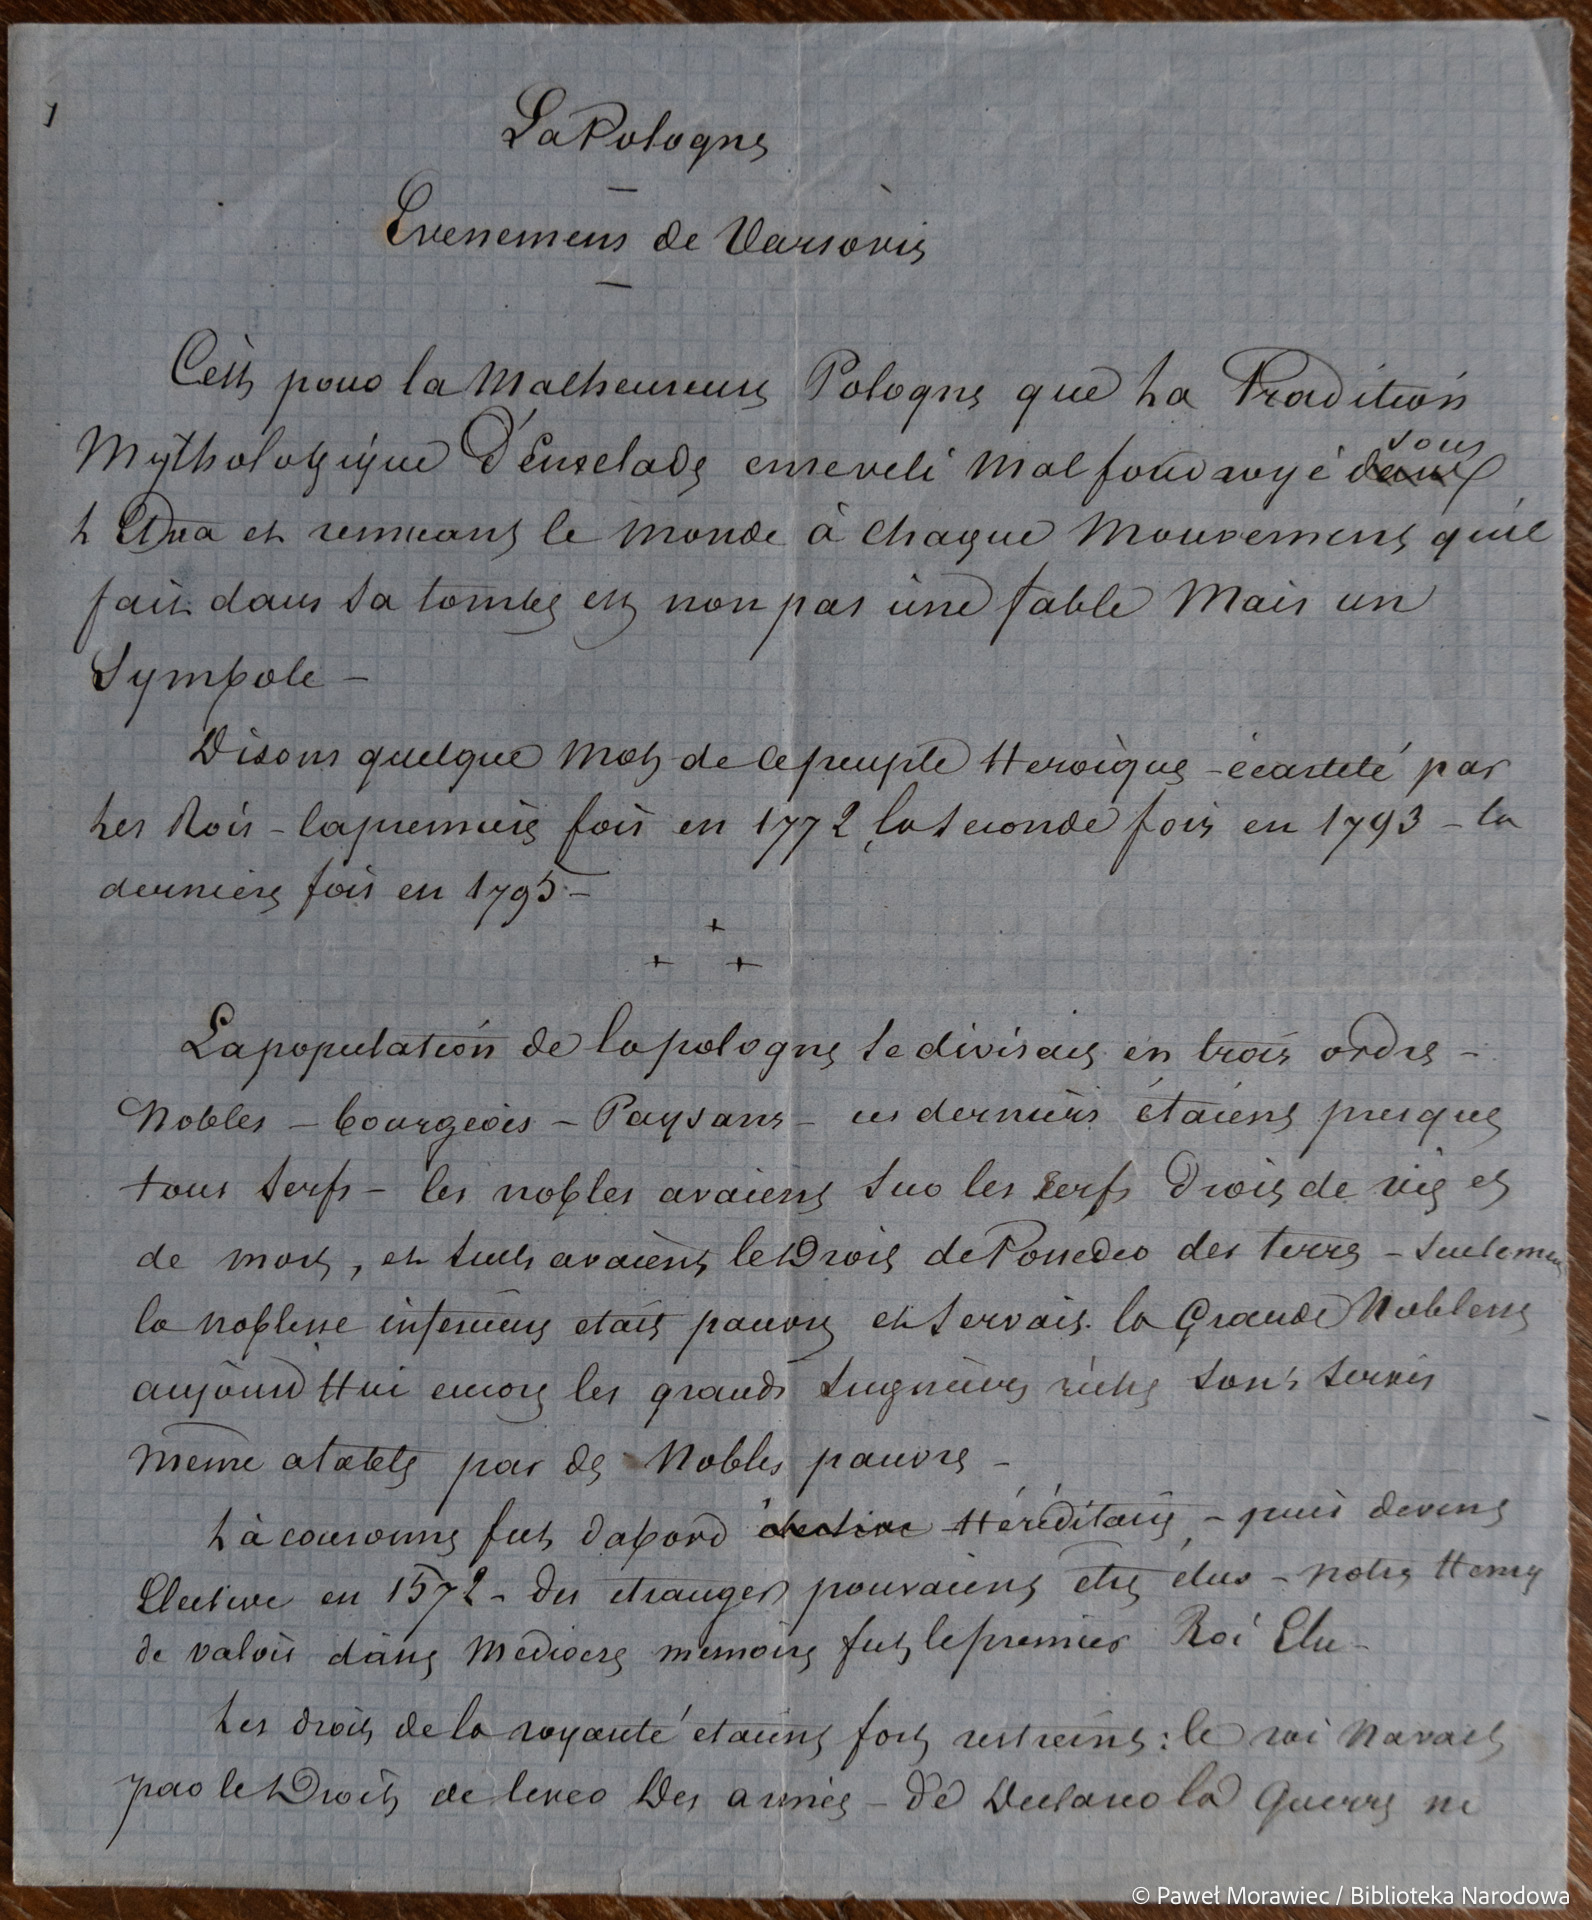 1
La Pologne
Evenemens de Varsovie
C'est pour la Malheureuse Pologne que La Tradition
Mythologique D'Encelade enseveli Mal foudroyé dans sous
L'Etna et remuant le monde à chaque Mouvement qu'il
fait dans sa tombe est non pas une fable Mais un
Symbole –
Disons quelque Mots de ce peuple Heroïque – écartelé par
Les Rois – la premiere fois en 1772, la seconde fois en 1793 – la
derniere fois en 1795 –
+
+ +
La population de la pologne se divisait en trois ordre –
Nobles – bourgeois – Paysans – ces derniers étaient presque
tous serfs – les nobles avaient sur les serfs Droit de vie et
de mort, et seuls avaient le Droit de Posseder des terres – seulement
la noblesse inferieure etait pauvre et servait la Grande Noblesse
aujourd'Hui encore les grands seigneurs riche sont servis
même a table par des Nobles pauvre –
La couronne fut d'abord élective Héréditaire – puis devint
Elective en 1572 – des etranger pouvaient être élus – notre Henry
de valois d'ane Mediocre memoire fut le premier Roi Elu –
Les droits de la royauté etaient fort restreint : le roi Navait
pas le Droit de lever Des armées – de Declarer la Guerre ni
© Paweł Morawiec / Biblioteka Narodowa